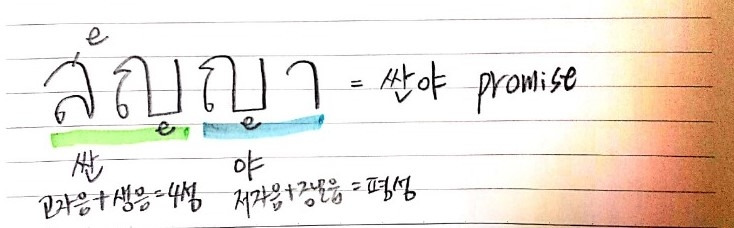 สัญญา = 싼야 promise
싼 야
고자음+생음=4성 저자음+장모음=평성